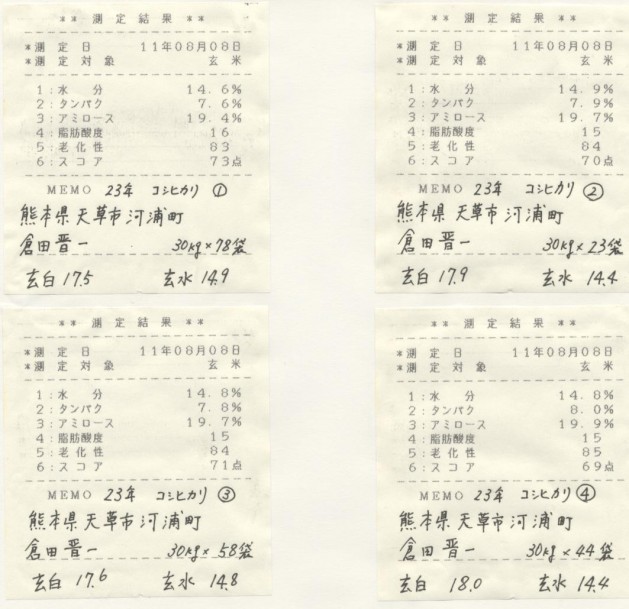 ** 測定結果 **
*測定日 11年08月08日
*測定対象 玄米
1:水分 14.6%
2:タンパク 7.6%
3:アミロース 19.4%
4:脂肪酸度 16
5:老化性 83
6:スコア 73点
MEMO 23年 コシヒカリ ①
熊本県天草市河浦町
倉田晋一 30kg×78袋
玄白 17.5 玄水 14.9
** 測定結果 **
*測定日 11年08月08日
*測定対象 玄米
1:水分 14.9%
2:タンパク 7.9%
3:アミロース 19.7%
4:脂肪酸度 15
5:老化性 84
6:スコア 70点
MEMO 23年 コシヒカリ ②
熊本県天草市河浦町
倉田晋一 30kg×23袋
玄白 17.9 玄水 14.4
** 測定結果 **
*測定日 11年08月08日
*測定対象 玄米
1:水分 14.8%
2:タンパク 7.8%
3:アミロース 19.7%
4:脂肪酸度 15
5:老化性 84
6:スコア 71点
MEMO 23年 コシヒカリ ③
熊本県天草市河浦町
倉田晋一 30kg×58袋
玄白 17.6 玄水 14.8
** 測定結果 **
*測定日 11年08月08日
*測定対象 玄米
1:水分 14.8%
2:タンパク 8.0%
3:アミロース 19.9%
4:脂肪酸度 15
5:老化性 85
6:スコア 69点
MEMO 23年 コシヒカリ ④
熊本県天草市河浦町
倉田晋一 30kg×44袋
玄白 18.0 玄水 14.4